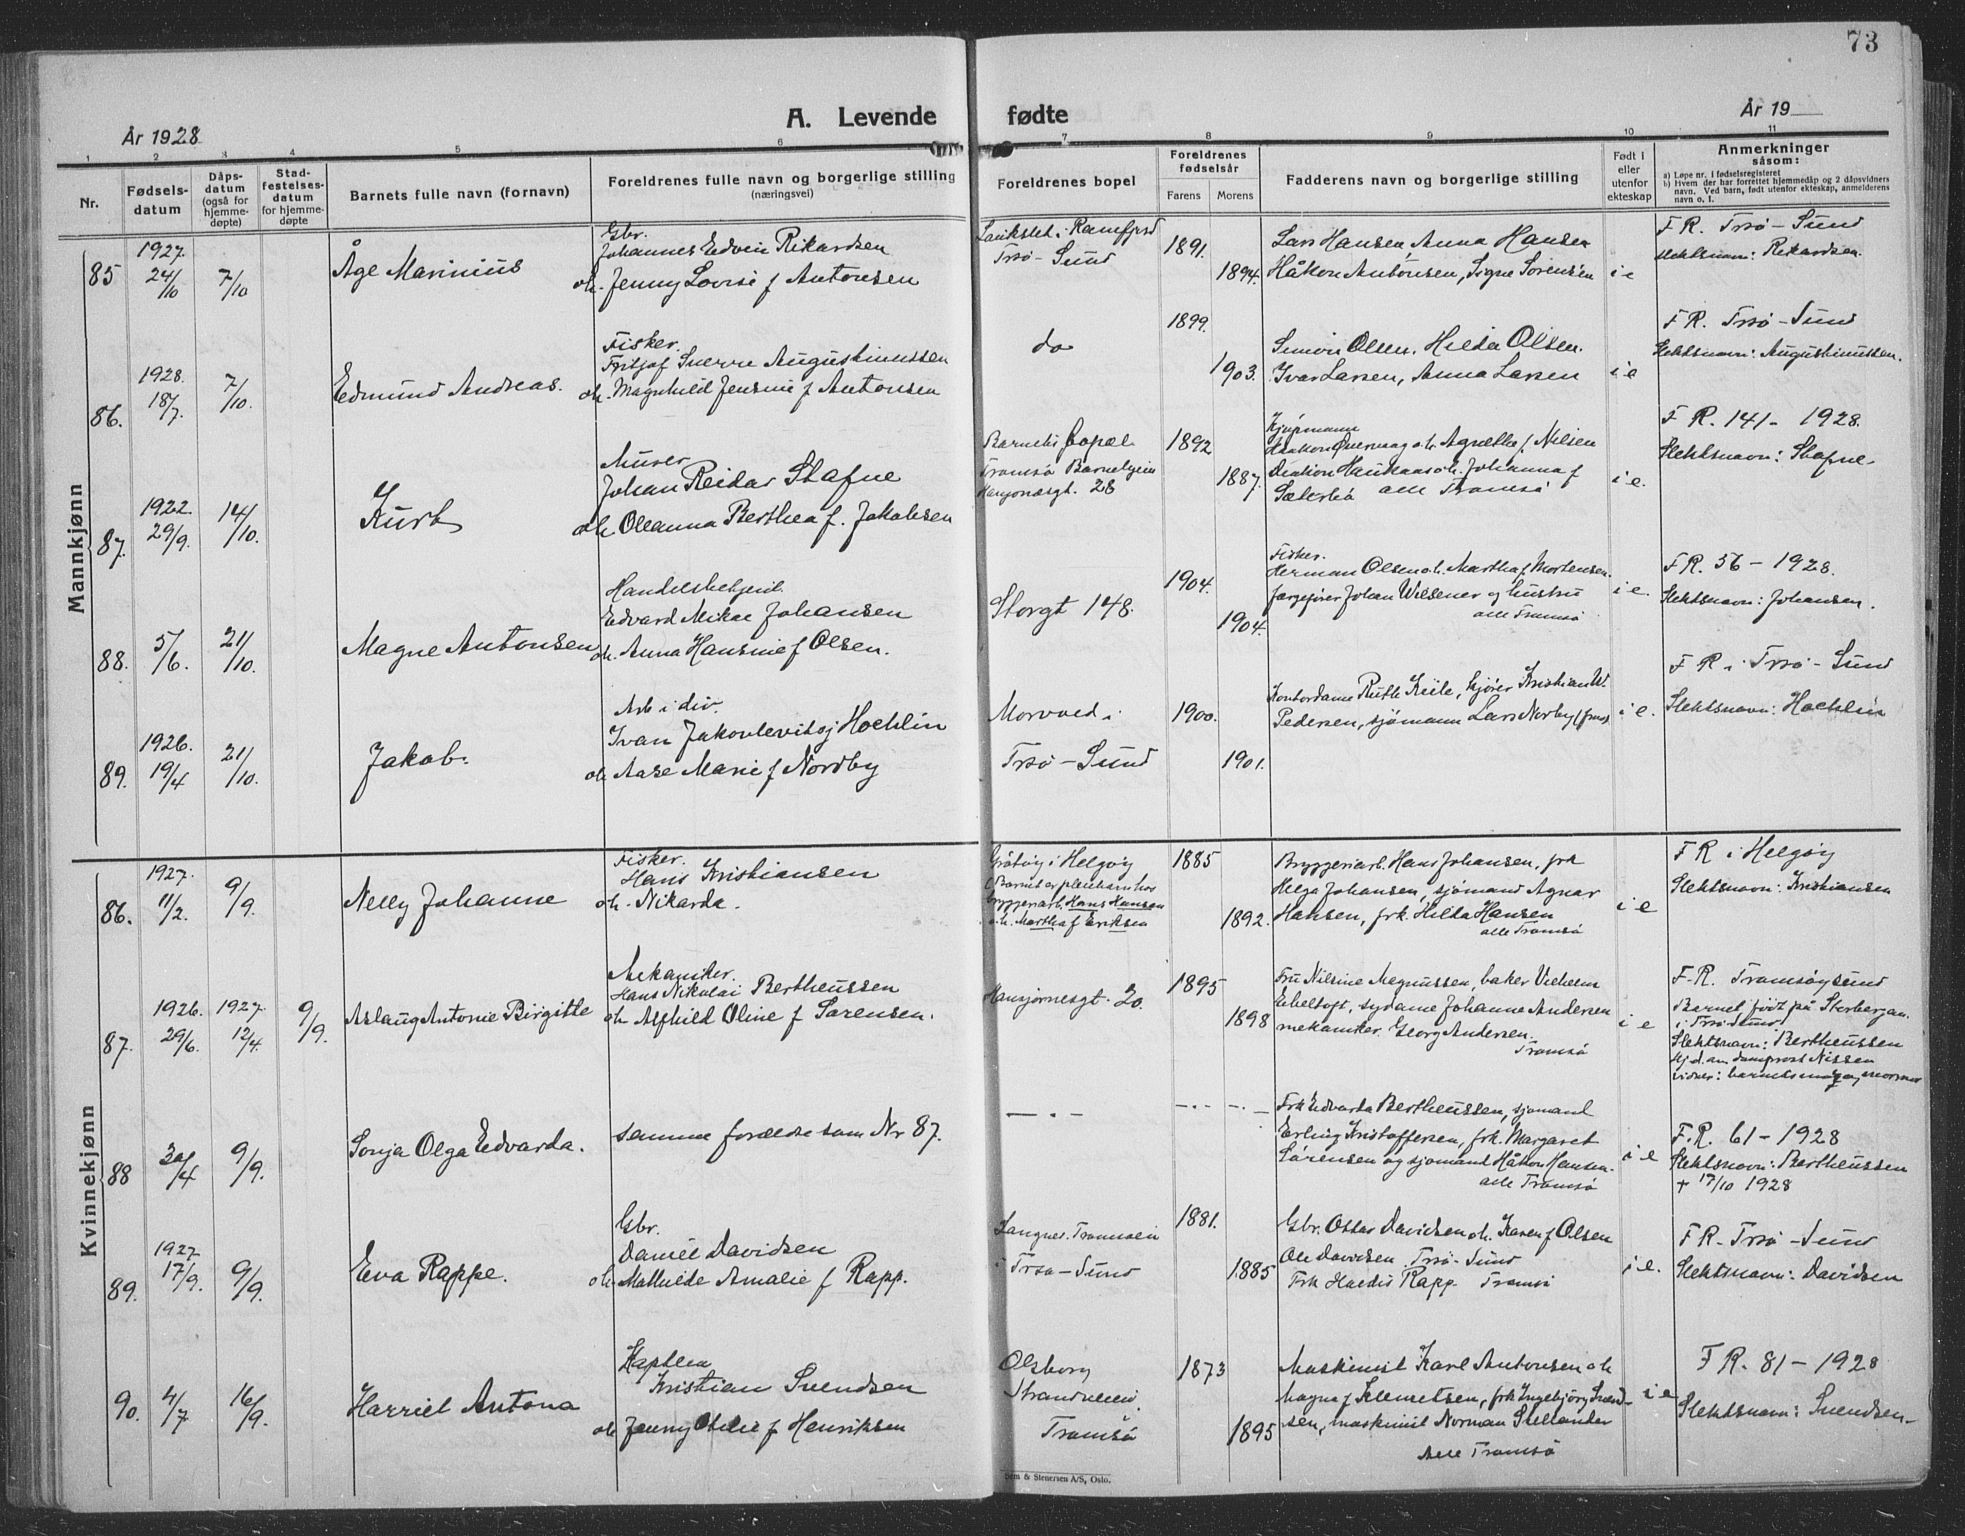 73
A. Levende fødte
År 1928
År 19
1 2 3 4 5 6 7 8 9 10 11
Nr.
Fødsels-
datum
Dåps-
datum
(også for
hjemme-
døpte)
Stad-
festelses-
datum
for hjemme-
døpte
Barnets fulle navn (fornavn)
Foreldrenes fulle navn og borgerlige stilling
(næringsvei)
Foreldrenes bopel
Foreldrenes
fødselsår
Farens
Morens
Fadderens navn og borgerlige stilling
Født i
eller
utenfor
ekteskap
Anmerkninger
såsom:
a) Løpe nr. i fødselsregisteret
b) Hvem der har forrettet hjemmedåp og 2 dåpsvidners
navn. Ved barn, født utenfor ekteskap, anmelderens
navn o. l.
Mannkjønn
85
1927.
24/10
7/10
Åge Marinius
Gbr.
Johannes Edvin Rikardsen
oh. Jenny Lovise f Antonsen
i Ramfjord
Trsø-Sund
1891.
1894.
Lars Hansen, Anna Hansen
Håkon Antonsen, Signe Sørensen
i e
F R. Trsø-Sund
Slektsnavn: Rikardsen.
86.
1928.
18/7.
7/10.
Edmund Andreas.
Fisker.
Fritjof Sverre Augustinussen
oh. Magnhild Jensine f Antonsen
do
1899.
1903.
Simon Olsen, Hilda Olsen.
Ivar Larsen, Anna Larsen
i e
F R. Trsø-Sund
Slektsnavn: Augustinussen.
87.
1922.
29/9.
14/10.
Kurt
Murer
Johan Reidar Stafne
oh. Oleanna Berthea f. Jakobsen
Barnets bopel
Tromsø Barnehjem
28
1892
1887.
Kjøpmann
Haakon oh. Agnethe f. Nilsen
oh. Johanna f
alle Tromsø
i e.
F R. 141 - 1928.
Slektsnavn: Stafne.
88.
5/6.
21/10.
Magne Antonsen
Handelsbetjent.
Edvard Mikal Johansen
oh. Anna Hansine f Olsen.
Storgt 148.
1904.
1904.
Fisker.
Herman Olsen oh. Martha f Mortensen.
Johan og hustru
alle Tromsø
i e.
F R. 56 - 1928.
Slektsnavn: Johansen.
89.
1926.
19/4
21/10.
Jakob.
Arb i div.
Ivan Jakovlevitsj Hochlin
oh Aase Marie f Nordby
Morvold i
Trsø-Sund
1900.
1901.
Kontordame Ruth Keile, kjører Kristian W.
Pedersen, sjømann Lars Norby
i e.
F R i Trsø-Sund
Slektsnavn: Hochlin
Kvinnekjønn
86.
1927.
11/2.
9/9.
Nelly Johanne
Fisker.
Hans Kristiansen
oh. Nikarda.
Gråtøy i Helgøy
(Barnet er pleiebarn hos
bryggeriarb. Hans Hansen
oh. Martha f Eriksen
1885
1892.
Bryggeriarb. Hans Johansen, frk
Helga Johansen, sjømand Agnar
Hansen, frk. Hilda Hansen
alle Tromsø
i e
F R i Helgøy
Slektsnavn: Kristiansen
87.
1926.
29/6.
1927.
12/4.
9/9.
Aslaug Antonie Birgitte
Mekaniker.
Hans Nikolai Bertheussen
oh Alfhild Oline f Sørensen.
Hansjordnesgt. 20.
1895
1898
Fru Nilsine Magnussen, baker Vilhelm
Ebeltoft, sydame Johanne Andersen
mekaniker Georg Andersen.
Tromsø
i e
F.R. Tromsøysund
Barnet født på Storbergan.
i Trsøsund
Slektsnavn: Bertheussen
Hj.d. av domprost Nissen
vidner: barnets mor og mormor
88
30/4
9/9.
Sonja Olga Edvarda.
samme forældre som Nr 87.
— . —
— . —
— . —
Frk Edvarda Bertheussen, sjømand
Erling Kristoffersen, frk. Margaret
Sørensen og sjømand Håkon Hansen.
alle Tromsø
i e
F.R. 61 - 1928
Slektsnavn: Bertheussen
+ 17/10 1928
89.
1927
17/9.
9/9.
Eva Rappe.
Gbr.
Daniel Davidsen
oh Mathilde Amalie f Rapp.
Langnes. Tromsøen
i Trsø-Sund
1881.
1885
Gbr. Ottar Davidsen oh. Karen f Olsen
Ole Davidsen Trsø-Sund
Frk Haldis Rapp. Tromsø
i e.
F R. Trsø-Sund
Slektsnavn: Davidsen
90.
4/7
16/9.
Harriet Antona
Kaptein
Kristian Svendsen
oh Jenny Otilie f Henriksen
Olsborg
Strandveien.
Tromsø
1873
1895
Maskinist Karl Antonsen oh
Magna f Klemetsen, frk Ingebjørg Svend-
sen, maskinist Norman Stellander
Alle Tromsø
i e
F R. 81 - 1928
Slektsnavn: Svendsen
Sem & Stenersen A/S, Oslo.